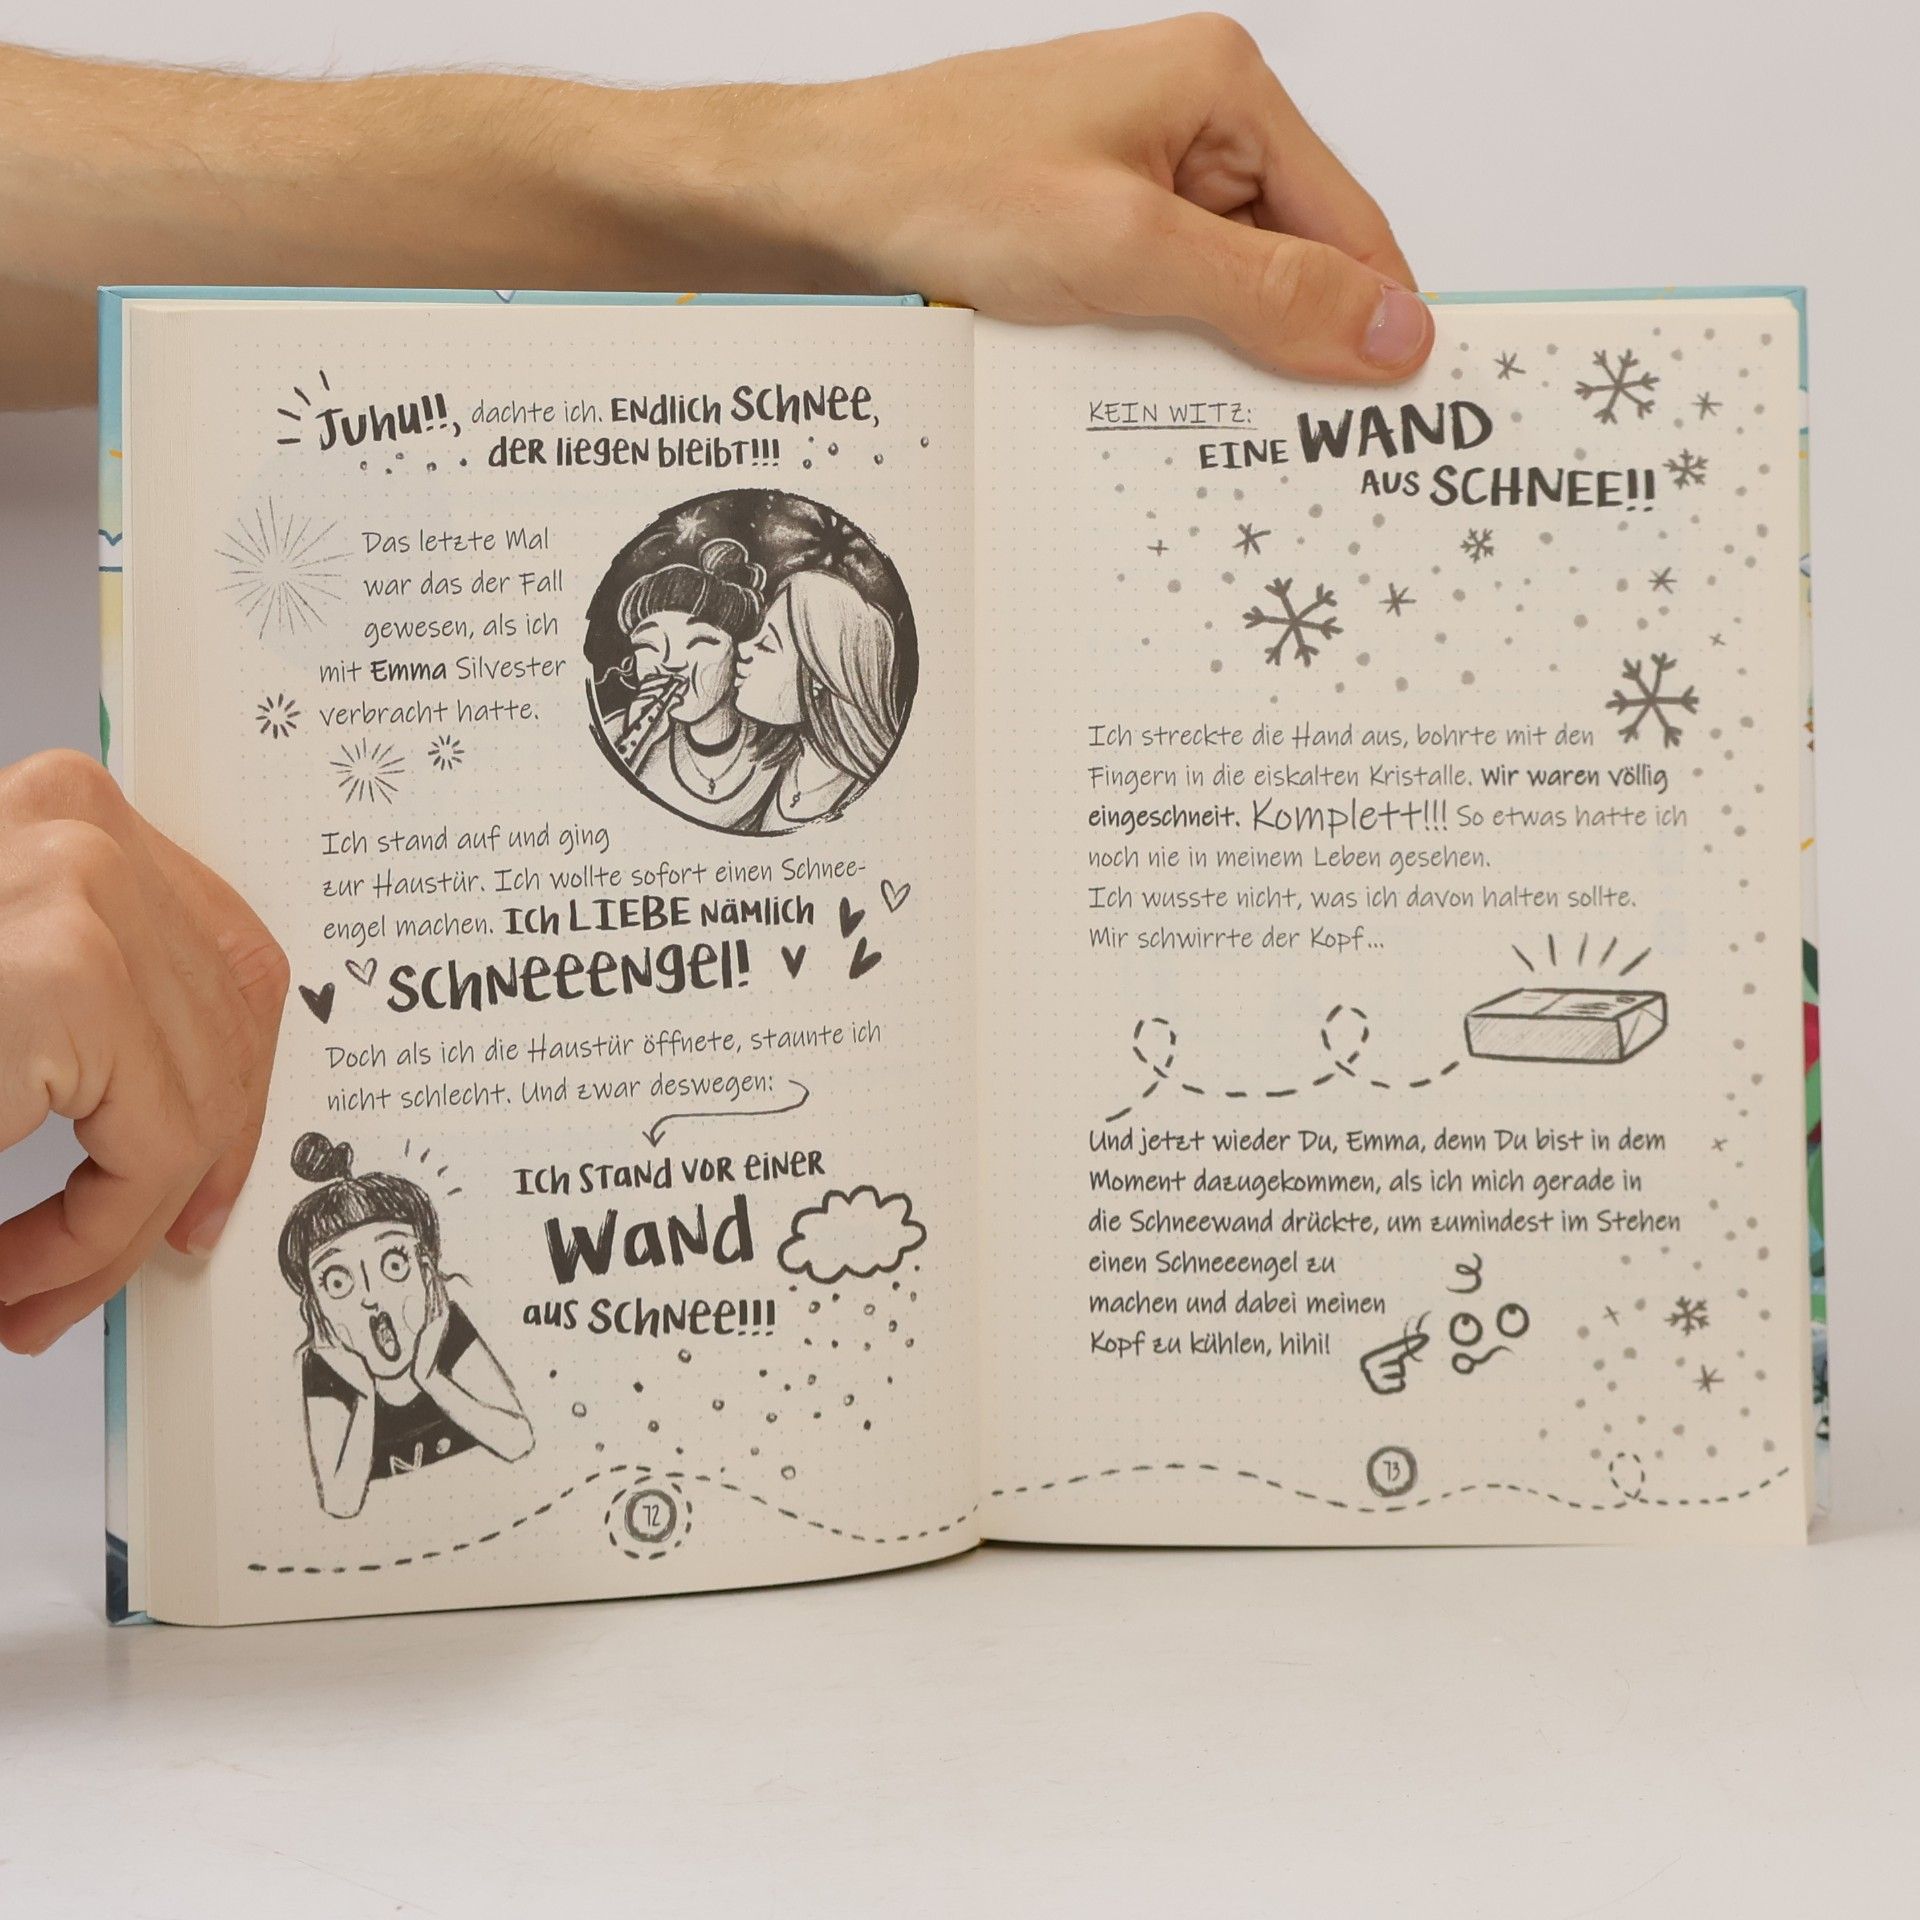 Juhu!!, dachte ich. Endlich Schnee,
der liegen bleibt!!!
Das letzte Mal
war das der Fall
gewesen, als ich
mit Emma Silvester
verbracht hatte.
Ich stand auf und ging
zur Haustür. Ich wollte sofort einen Schnee-
engel machen. Ich LIEBE nämlich
Schneeengel!
Doch als ich die Haustür öffnete, staunte ich
nicht schlecht. Und zwar deswegen:
Ich stand vor einer
Wand
aus Schnee!!!
72
KEIN WITZ:
EINE WAND
AUS SCHNEE!!
Ich streckte die Hand aus, bohrte mit den
Fingern in die eiskalten Kristalle. Wir waren völlig
eingeschneit. Komplett!!! So etwas hatte ich
noch nie in meinem Leben gesehen.
Ich wusste nicht, was ich davon halten sollte.
Mir schwirrte der Kopf...
Und jetzt wieder Du, Emma, denn Du bist in dem
Moment dazugekommen, als ich mich gerade in
die Schneewand drückte, um zumindest im Stehen
einen Schneeengel zu
machen und dabei meinen
Kopf zu kühlen, hihi!
73